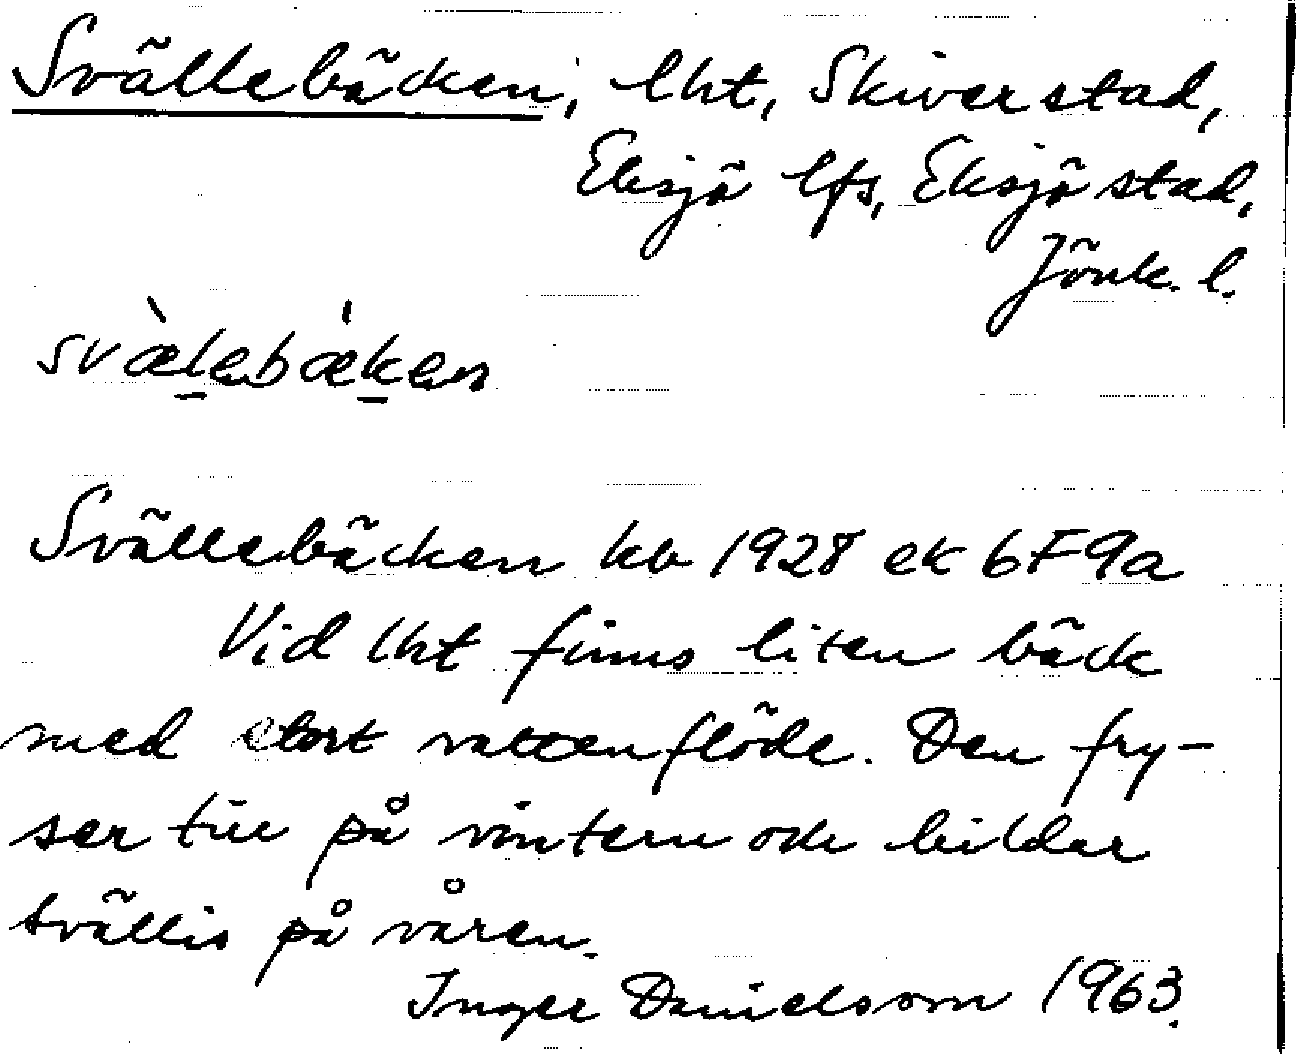 Svällebäcken, lht, Skiverstad,
Eksjö lfs, Eksjö stad,
Jönk. l.
svæ̀l̠ebæ̀k̠en
Svällebäcken kb 1928 ek 6F9a
Vid lht finns liten bäck
med stort vattenflöde. Den fry-
ser till på vintern och bildar
svällis på våren.
Inger Danielsson 1963.